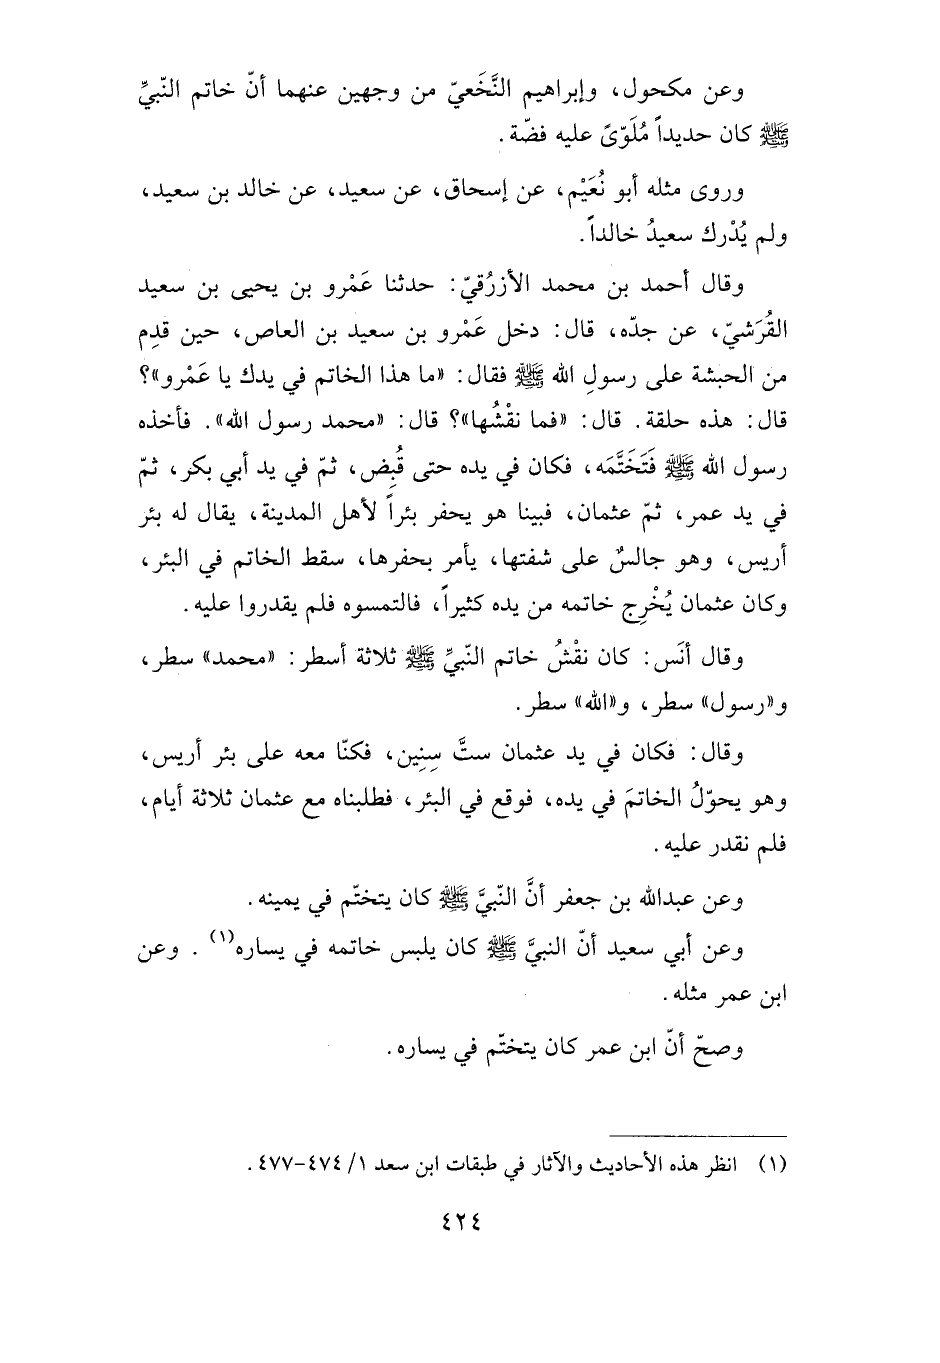 وعن مكحول، وإبراهيم النَّخَعيّ من وجهين عنهما أنّ خاتم النّبيِّ
ﷺ كان حديداً مُلَوّىً عليه فضّة.
وروى مثله أبو نُعَيْم، عن إسحاق، عن سعيد، عن خالد بن سعيد،
ولم يُدْرك سعيدُ خالداً.
وقال أحمد بن محمد الأزرُقيّ: حدثنا عَمْرو بن يحيى بن سعيد
القُرَشيّ، عن جدّه، قال: دخل عَمْرو بن سعيد بن العاص، حين قدِم
من الحبشة على رسولِ الله ﷺ فقال: «ما هذا الخاتم في يدك يا عَمْرو»؟
قال: هذه حلقة. قال: «فما نقْشُها»؟ قال: «محمد رسول الله». فأخذه
رسول الله ﷺ فَتَخَتَّمَه، فكان في يده حتى قُبِض، ثمّ في يد أبي بكر، ثمّ
في يد عمر، ثمّ عثمان، فبينا هو يحفر بئراً لأهل المدينة، يقال له بئر
أريس، وهو جالسٌ على شفتها، يأمر بحفرها، سقط الخاتم في البئر،
وكان عثمان يُخْرِج خاتمه من يده كثيراً، فالتمسوه فلم يقدروا عليه.
وقال أنَس: كان نقْشُ خاتم النّبيِّ ﷺ ثلاثة أسطر: «محمد» سطر،
و«رسول» سطر، و«الله» سطر.
وقال: فكان في يد عثمان ستَّ سِنِين، فكنّا معه على بئر أريس،
وهو يحوّلُ الخاتمَ في يده، فوقع في البئر، فطلبناه مع عثمان ثلاثة أيام،
فلم نقدر عليه.
وعن عبدالله بن جعفر أنَّ النّبيَّ ﷺ كان يتختّم في يمينه.
وعن أبي سعيد أنّ النبيَّ ﷺ كان يلبس خاتمه في يساره(١). وعن
ابن عمر مثله.
وصحّ أنّ ابن عمر كان يتختّم في يساره.
(١) انظر هذه الأحاديث والآثار في طبقات ابن سعد ١/ ٤٧٤-٤٧٧.
٤٢٤